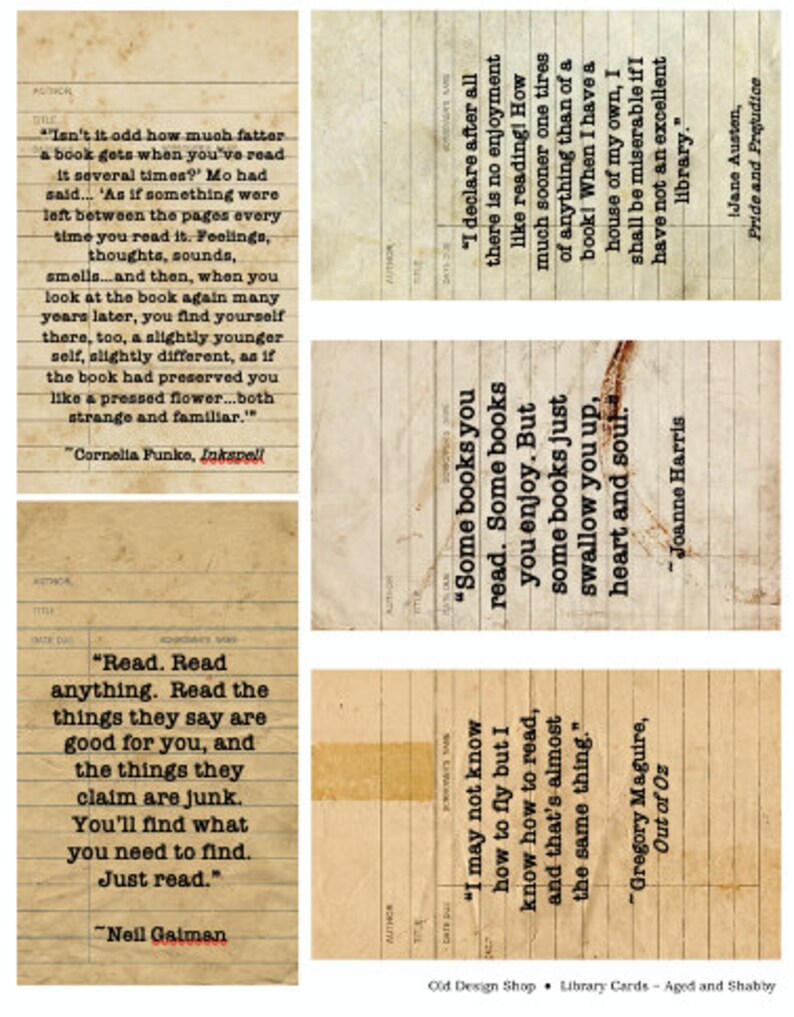 AUTHOR
TITLE
"'Isn't it odd how much fatter
a book gets when you've read
it several times?' Mo had
said... 'As if something were
left between the pages every
time you read it. Feelings,
thoughts, sounds,
smells...and then, when you
look at the book again many
years later, you find yourself
there, too, a slightly younger
self, slightly different, as if
the book had preserved you
like a pressed flower...both
strange and familiar.'"
~Cornelia Funke, Inkspell
AUTHOR
TITLE
DATE DUE BORROWER'S NAME
"Read. Read
anything. Read the
things they say are
good for you, and
the things they
claim are junk.
You'll find what
you need to find.
Just read."
~Neil Gaiman
AUTHOR
TITLE
DATE DUE BORROWER'S NAME
"I declare after all
there is no enjoyment
like reading! How
much sooner one tires
of anything than of a
book! When I have a
house of my own, I
shall be miserable if I
have not an excellent
library."
~Jane Austen,
Pride and Prejudice
AUTHOR
TITLE
DATE DUE BORROWER'S NAME
"Some books you
read. Some books
you enjoy. But
some books just
swallow you up,
heart and soul."
~ Joanne Harris
AUTHOR
TITLE
DATE DUE BORROWER'S NAME
"I may not know
how to fly but I
know how to read,
and that's almost
the same thing."
~Gregory Maguire,
Out of Oz
Old Design Shop • Library Cards ~ Aged and Shabby